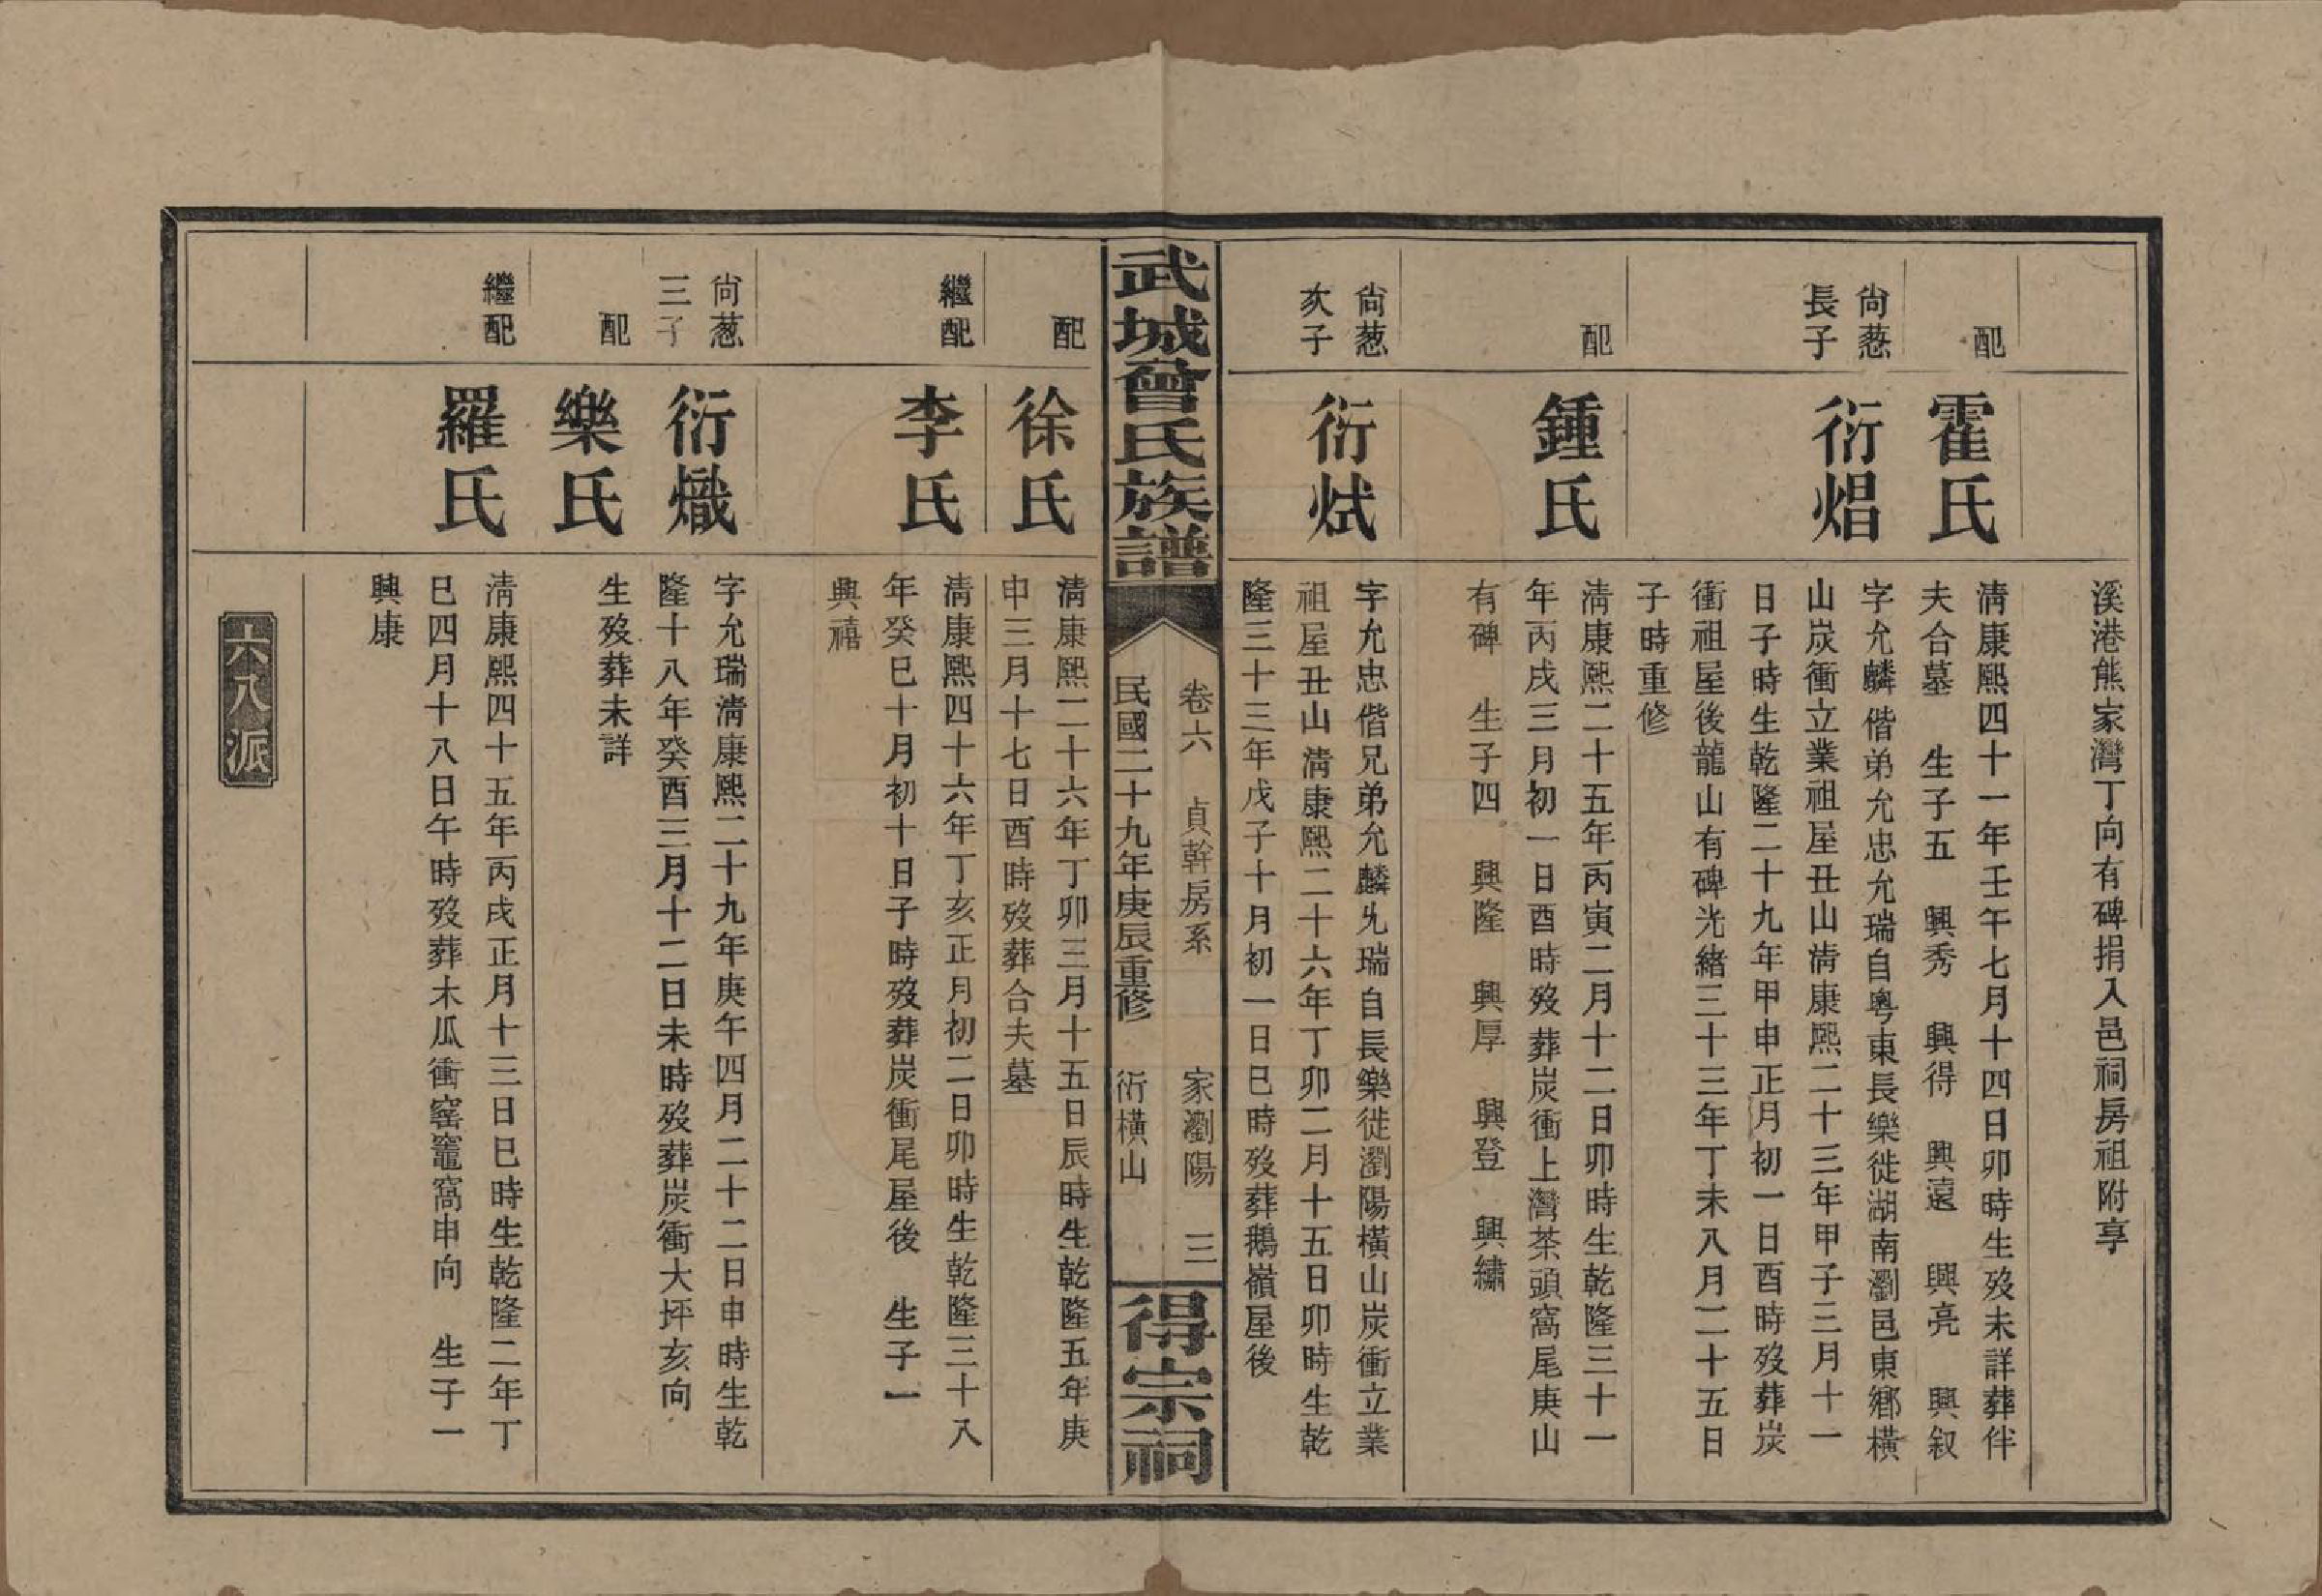 溪港熊家灣丁向有碑捐入邑祠房祖附享
配
霍氏
清康熙四十一年壬午七月十四日卯時生歿未詳葬伴
夫合墓　生子五　興秀　興得　興遠　興亮　興叙
尙葱
長子
衍焻
字允麟偕弟允忠允瑞自粵東長樂徙湖南瀏邑東鄉橫
山炭衝立業祖屋丑山清康熙二十三年甲子三月十一
日子時生乾隆二十九年甲申正月初一日酉時歿葬炭
衝祖屋後龍山有碑光緒三十三年丁未八月二十五日
子時重修
配
鍾氏
清康熙二十五年丙寅二月十二日卯時生乾隆三十一
年丙戌三月初一日酉時歿葬炭衝上灣茶頭窩尾庚山
有碑　生子四　興隆　興厚　興登　興繡
尙葱
次子
衍烒
字允忠偕兄弟允麟允瑞自長樂徙瀏陽橫山炭衝立業
祖屋丑山清康熙二十六年丁卯二月十五日卯時生乾
隆三十三年戊子十月初一日巳時歿葬鵝嶺屋後
武城曾氏族譜
卷六　貞幹房系　家瀏陽　三
民國二十九年庚辰重修　衍橫山
得宗祠
配
徐氏
清康熙二十六年丁卯三月十五日辰時生乾隆五年庚
申三月十七日酉時歿葬合夫墓
繼配
李氏
清康熙四十六年丁亥正月初二日卯時生乾隆三十八
年癸巳十月初十日子時歿葬炭衝尾屋後　生子一
興禧
尙葱
三子
衍熾
字允瑞清康熙二十九年庚午四月二十二日申時生乾
隆十八年癸酉三月十二日未時歿葬炭衝大坪亥向
配
樂氏
生歿葬未詳
繼配
羅氏
清康熙四十五年丙戌正月十三日巳時生乾隆二年丁
巳四月十八日午時歿葬木瓜衝窰竈窩申向　生子一
興康
六八派